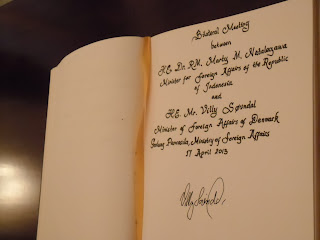 Bilateral Meeting
between
H.E. Dr. R.M. Marty M. Natalegawa
Minister for Foreign Affairs of the Republic
of Indonesia
and
H.E. Mr. Villy Søvndal
Minister of Foreign Affairs of Denmark
Gedung Pancasila, Ministry of Foreign Affairs
17 April 2013
Villy Søvndal